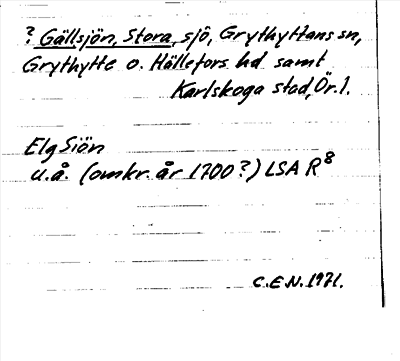 ? Gällsjön, Stora, sjö, Grythyttans sn,
Grythytte o. Hällefors hd samt
Karlskoga stad, Ör.l.
Elg Siön
u.å. (omkr. år 1700?) LSA R8
C.E.N. 1971.